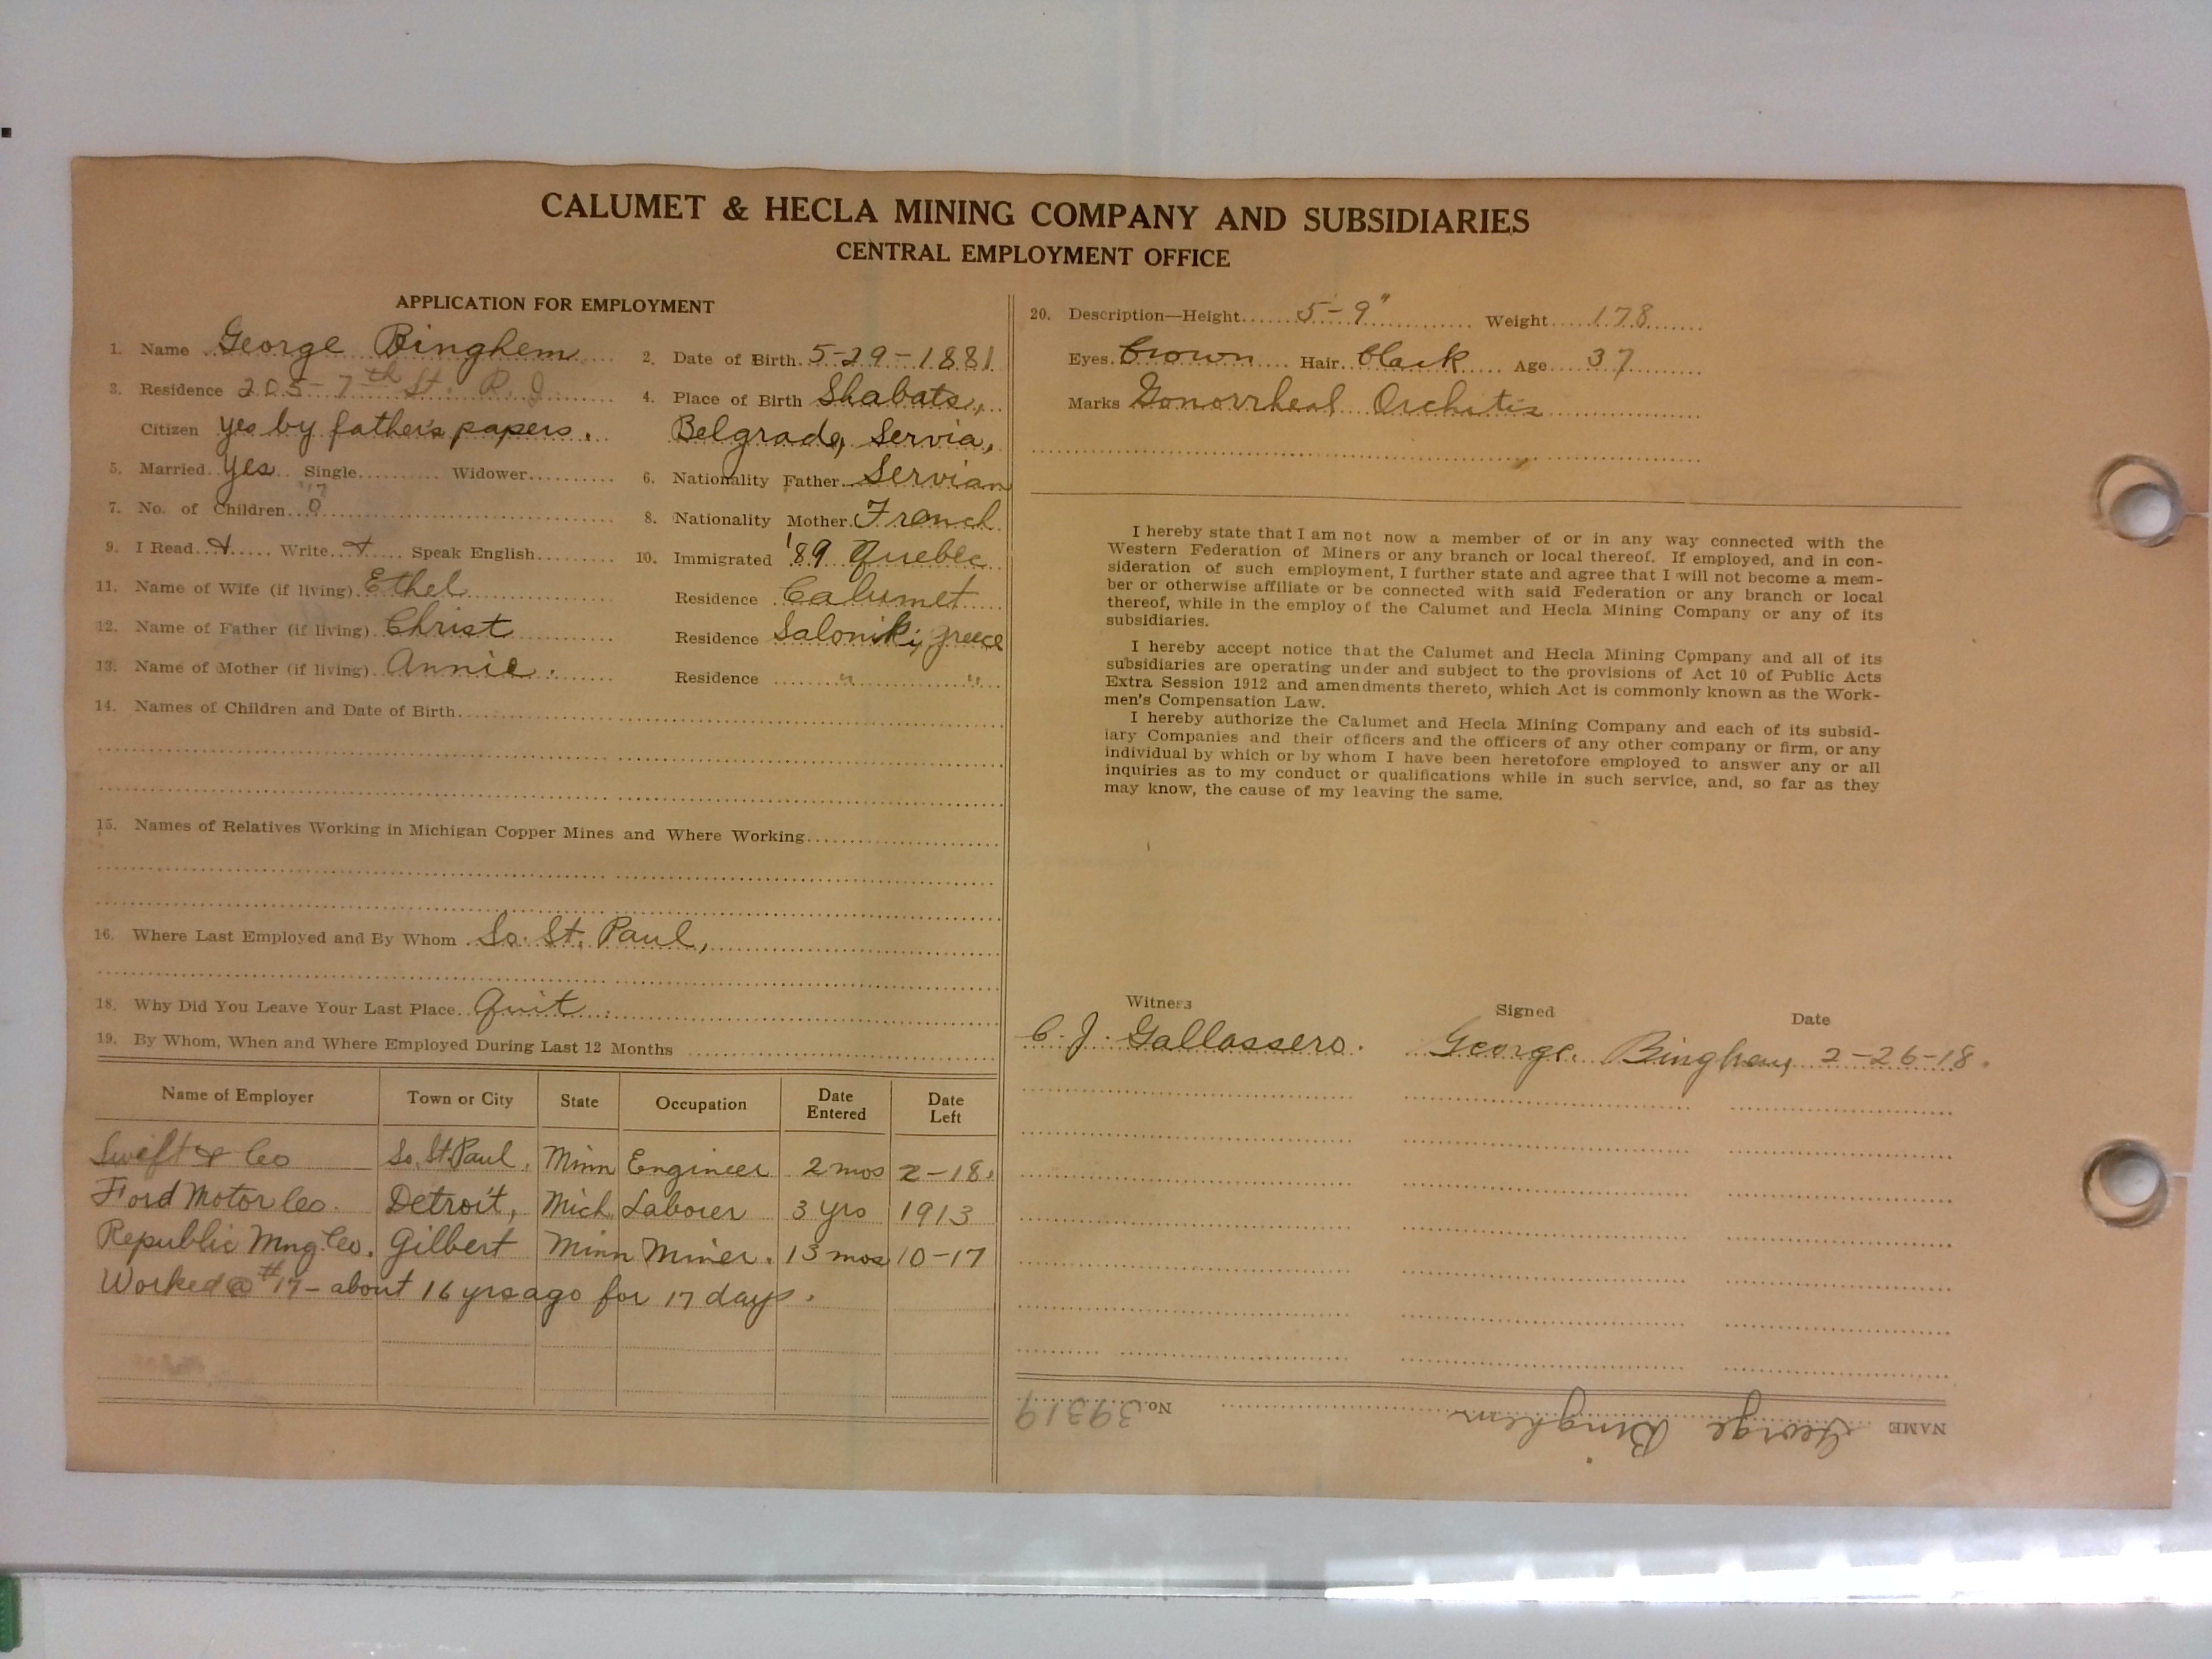 CALUMET & HECLA MINING COMPANY AND SUBSIDIARIES
CENTRAL EMPLOYMENT OFFICE
APPLICATION FOR EMPLOYMENT
1. Name George Binghem 2. Date of Birth 5-29-1881
3. Residence 205-7th St. R. J. 4. Place of Birth Shabats,
Citizen yes by father's papers. Belgrade, Servia,
5. Married yes Single Widower 6. Nationality Father Servian
7. No. of Children 0 8. Nationality Mother French
9. I Read + Write + Speak English 10. Immigrated '89 Quebec
11. Name of Wife (if living) Ethel Residence Calumet
12. Name of Father (if living) Christ Residence Saloniki, Greece
13. Name of Mother (if living) Annie. Residence " "
14. Names of Children and Date of Birth
15. Names of Relatives Working in Michigan Copper Mines and Where Working
16. Where Last Employed and By Whom So. St. Paul,
18. Why Did You Leave Your Last Place Quit
19. By Whom, When and Where Employed During Last 12 Months
Name of Employer Town or City State Occupation Date Entered Date Left
Swift & Co So. St. Paul. Minn Engineer 2 mos 2-18.
Ford Motor Co. Detroit, Mich. Laborer 3 yrs 1913
Republic Mng. Co. Gilbert Minn Miner. 13 mos 10-17
Worked @ #17 - about 16 yrs ago for 17 days.
20. Description—Height 5-9" Weight 178
Eyes. brown Hair. black Age 37
Marks Gonorrheal Orchitis
I hereby state that I am not now a member of or in any way connected with the
Western Federation of Miners or any branch or local thereof. If employed, and in con-
sideration of such employment, I further state and agree that I will not become a mem-
ber or otherwise affiliate or be connected with said Federation or any branch or local
thereof, while in the employ of the Calumet and Hecla Mining Company or any of its
subsidiaries.
I hereby accept notice that the Calumet and Hecla Mining Company and all of its
subsidiaries are operating under and subject to the provisions of Act 10 of Public Acts
Extra Session 1912 and amendments thereto, which Act is commonly known as the Work-
men's Compensation Law.
I hereby authorize the Calumet and Hecla Mining Company and each of its subsid-
iary Companies and their officers and the officers of any other company or firm, or any
individual by which or by whom I have been heretofore employed to answer any or all
inquiries as to my conduct or qualifications while in such service, and, so far as they
may know, the cause of my leaving the same.
Witness Signed Date
C. J. Gallassero. George. Bingham 2-26-18.
NAME George Binghem No. 39319